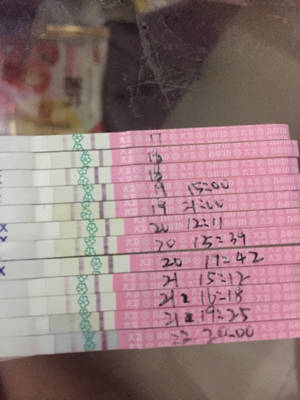 17
18
18
19 15:00
19 21:00
20 12:11
20 15:39
20 17:42
21 15:12
21 19:25
22 20:00